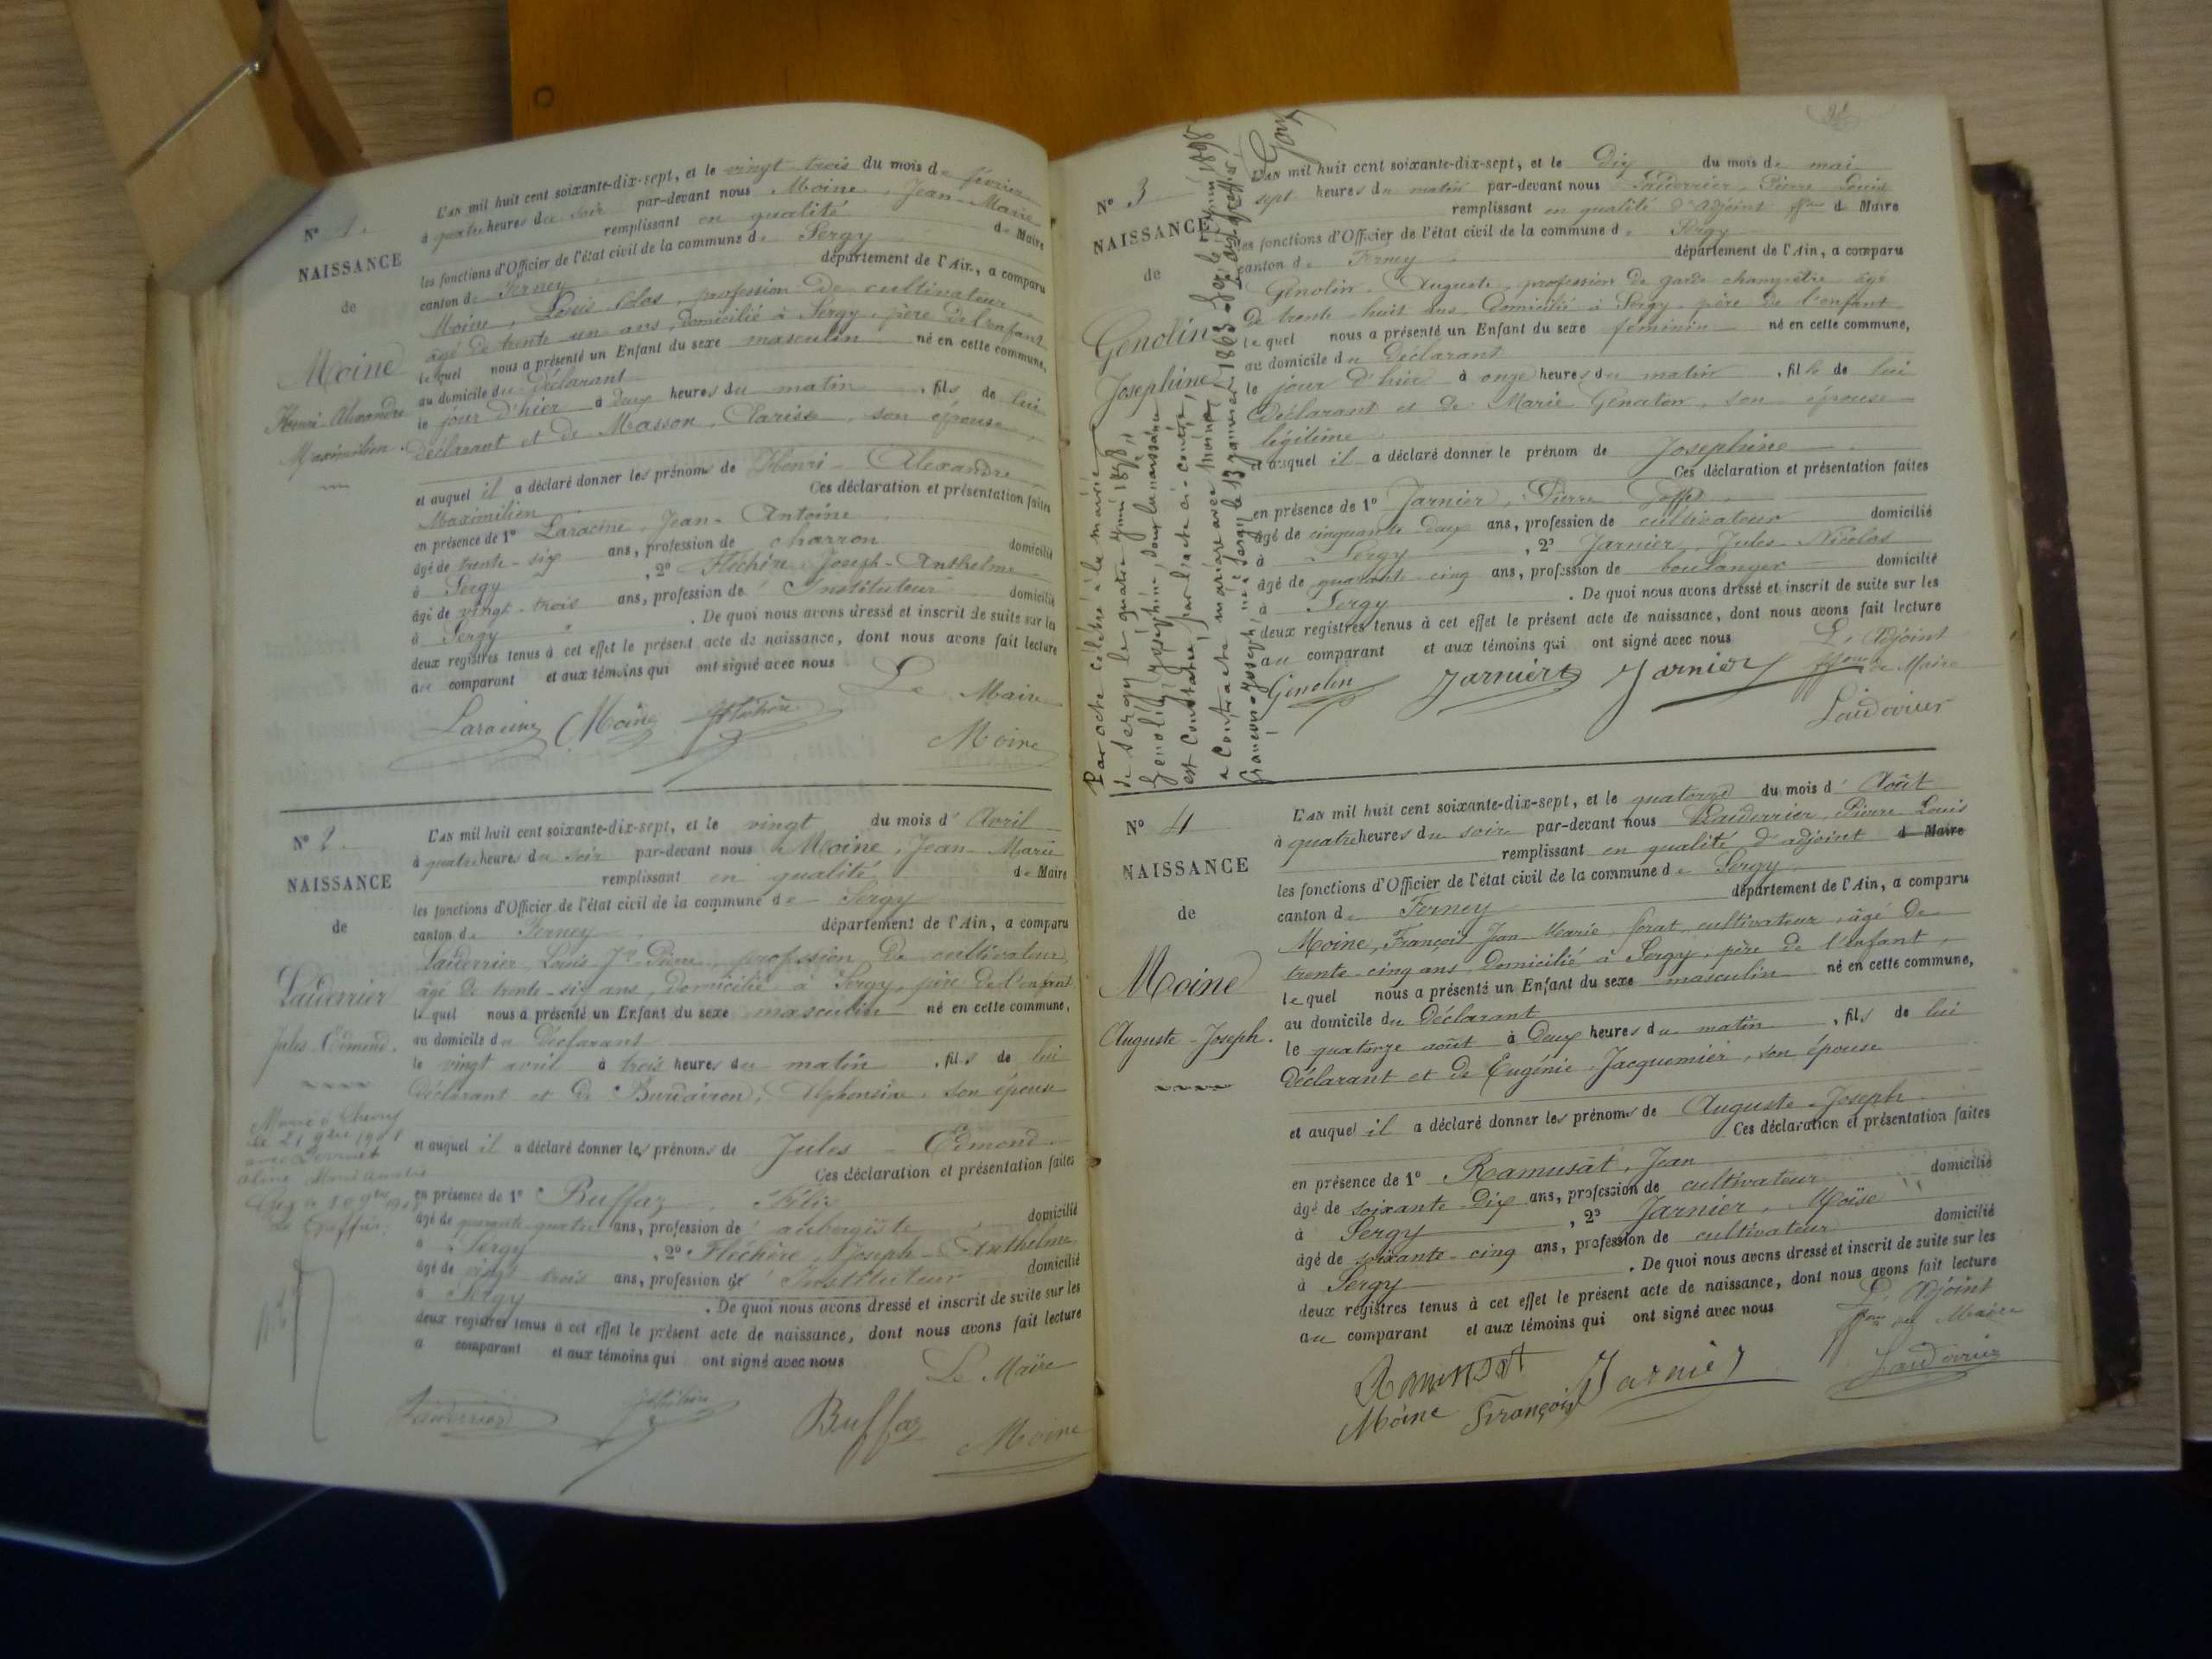 N° 1.
NAISSANCE
de
Moine
Henri Alexandre
Maximilien.
L'AN mil huit cent soixante-dix-sept, et le vingt-trois du mois de février
à quatre heures du soir par-devant nous Moine, Jean-Marie
remplissant en qualité de Maire
les fonctions d'Officier de l'état civil de la commune de Sergy
canton de Ferney département de l'Ain, a comparu
Moine, Louis profession de cultivateur
âgé de trente un ans, domicilié à Sergy, père de l'enfant
lequel nous a présenté un Enfant du sexe masculin né en cette commune,
au domicile du déclarant
le jour d'hier à deux heures du matin, fils de lui
déclarant et de Masson, Clarisse, son épouse
et auquel il a déclaré donner les prénoms de Henri-Alexandre
Maximilien Ces déclaration et présentation faites
en présence de 1° Laracine, Jean-Antoine
âgé de trente-six ans, profession de charron domicilié
à Sergy, 2° Fléchère, Joseph-Anthelme
âgé de vingt-trois ans, profession de Instituteur domicilié
à Sergy. De quoi nous avons dressé et inscrit de suite sur les
deux registres tenus à cet effet le présent acte de naissance, dont nous avons fait lecture
au comparant et aux témoins qui ont signé avec nous
Le Maire
Laracine Moine Fléchère
Moine
N° 2.
NAISSANCE
de
Lauderrier
Jules Edmond.
Marié à
le 21 9bre
L'AN mil huit cent soixante-dix-sept, et le vingt du mois d'Avril
à quatre heures du soir par-devant nous Moine, Jean-Marie
remplissant en qualité de Maire
les fonctions d'Officier de l'état civil de la commune de Sergy
canton de Ferney département de l'Ain, a comparu
Lauderrier, Louis Pierre, profession de cultivateur
âgé de trente-six ans, domicilié à Sergy, père de l'enfant
lequel nous a présenté un Enfant du sexe masculin né en cette commune,
au domicile du déclarant
le vingt avril à trois heures du matin, fils de lui
déclarant et de Burdairon, Alphonsine, son épouse
et auquel il a déclaré donner les prénoms de Jules-Edmond
Ces déclaration et présentation faites
en présence de 1° Buffaz, Félix
âgé de quarante-quatre ans, profession de aubergiste domicilié
à Sergy, 2° Fléchère, Joseph-Anthelme
âgé de vingt-trois ans, profession de Instituteur domicilié
à Sergy. De quoi nous avons dressé et inscrit de suite sur les
deux registres tenus à cet effet le présent acte de naissance, dont nous avons fait lecture
a comparant et aux témoins qui ont signé avec nous
Le Maire
Lauderrier Fléchère Buffaz Moine
N° 3
NAISSANCE
de
Genolin
Josephine
Par acte célébré à la mairie
de Sergy le quatre Juin 1898,
Genolin Joséphine, dont la naissance
est constatée par l'acte ci-contre,
a contracté mariage avec Moine,
François-Joseph, né à Sergy le 13 janvier 1863
L'AN mil huit cent soixante-dix-sept, et le dix du mois de mai
sept heures du matin par-devant nous Lauderrier, Pierre Louis
remplissant en qualité d'adjoint ffons de Maire
les fonctions d'Officier de l'état civil de la commune de Sergy
canton de Ferney département de l'Ain, a comparu
Genolin, Auguste, profession de garde champêtre âgé
de trente-huit ans, domicilié à Sergy, père de l'enfant
lequel nous a présenté un Enfant du sexe féminin né en cette commune,
au domicile du déclarant
le jour d'hier à onze heures du matin, fille de lui
déclarant et de Marie Genaton, son épouse
légitime
et auquel il a déclaré donner le prénom de Josephine
Ces déclaration et présentation faites
en présence de 1° Jarnier, Pierre
âgé de cinquante deux ans, profession de cultivateur domicilié
à Sergy, 2° Jarnier, Jules Nicolas
âgé de quarante-cinq ans, profession de boulanger domicilié
à Sergy. De quoi nous avons dressé et inscrit de suite sur les
deux registres tenus à cet effet le présent acte de naissance, dont nous avons fait lecture
au comparant et aux témoins qui ont signé avec nous
L'Adjoint
ffons de Maire
Genolin Jarnier Jarnier
Lauderrier
N° 4
NAISSANCE
de
Moine
Auguste-Joseph.
L'AN mil huit cent soixante-dix-sept, et le quatorze du mois d'Août
à quatre heures du soir par-devant nous Lauderrier, Pierre Louis
remplissant en qualité d'adjoint d Maire
les fonctions d'Officier de l'état civil de la commune de Sergy
canton de Ferney département de l'Ain, a comparu
Moine, François Jean-Marie cultivateur, âgé de
trente-cinq ans, domicilié à Sergy, père de l'enfant,
lequel nous a présenté un Enfant du sexe masculin né en cette commune,
au domicile du déclarant
le quatorze août à deux heures du matin, fils de lui
déclarant et de Eugénie Jacquemier, son épouse
et auquel il a déclaré donner les prénoms de Auguste-Joseph
Ces déclaration et présentation faites
en présence de 1° Ramusat, Jean
âgé de soixante-dix ans, profession de cultivateur domicilié
à Sergy, 2° Jarnier, Moïse
âgé de soixante-cinq ans, profession de cultivateur domicilié
à Sergy. De quoi nous avons dressé et inscrit de suite sur les
deux registres tenus à cet effet le présent acte de naissance, dont nous avons fait lecture
au comparant et aux témoins qui ont signé avec nous
L'Adjoint
ffons de Maire
Ramusat Jarnier Lauderrier
Moine François